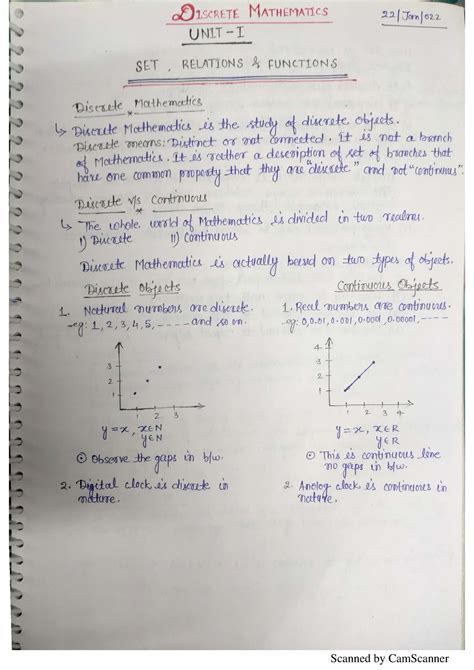 DISCRETE MATHEMATICS
22/Jan/022
UNIT-I
SET, RELATIONS & FUNCTIONS
Discrete Mathematics
↳ Discrete Mathematics is the study of discrete objects.
Discrete means: Distinct or not connected. It is not a branch
of Mathematics. It is rather a description of set of branches that
have one common property that they are "discrete" and not "continuous".
Discrete v/s Continuous
↳ The whole world of Mathematics is divided in two realms.
I) Discrete II) Continuous
Discrete Mathematics is actually based on two types of objects.
Discrete Objects Continuous Objects
1. Natural numbers are discrete. 1. Real numbers are continuous.
-eg: 1, 2, 3, 4, 5, ---- and so on. -eg: 0, 0.01, 0.001, 0.0001, 0.00001, ----
4
3 3
2 2
1 1
1 2 3 1 2 3 4
y=x, x∈N y=x, x∈R
y∈N y∈R
⊙ Observe the gaps in b/w. ⊙ This is continuous line
no gaps in b/w.
2. Digital clock is discrete in 2. Analog clock is continuous in
nature. nature.
Scanned by CamScanner